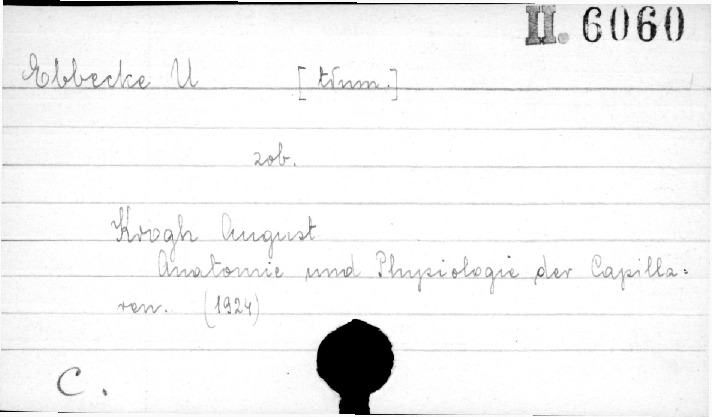 II. 6060
Ebbecke U [tłum.]
zob.
Krogh August
Anatomie und Physiologie der Capilla=
ren. (1924)
C.